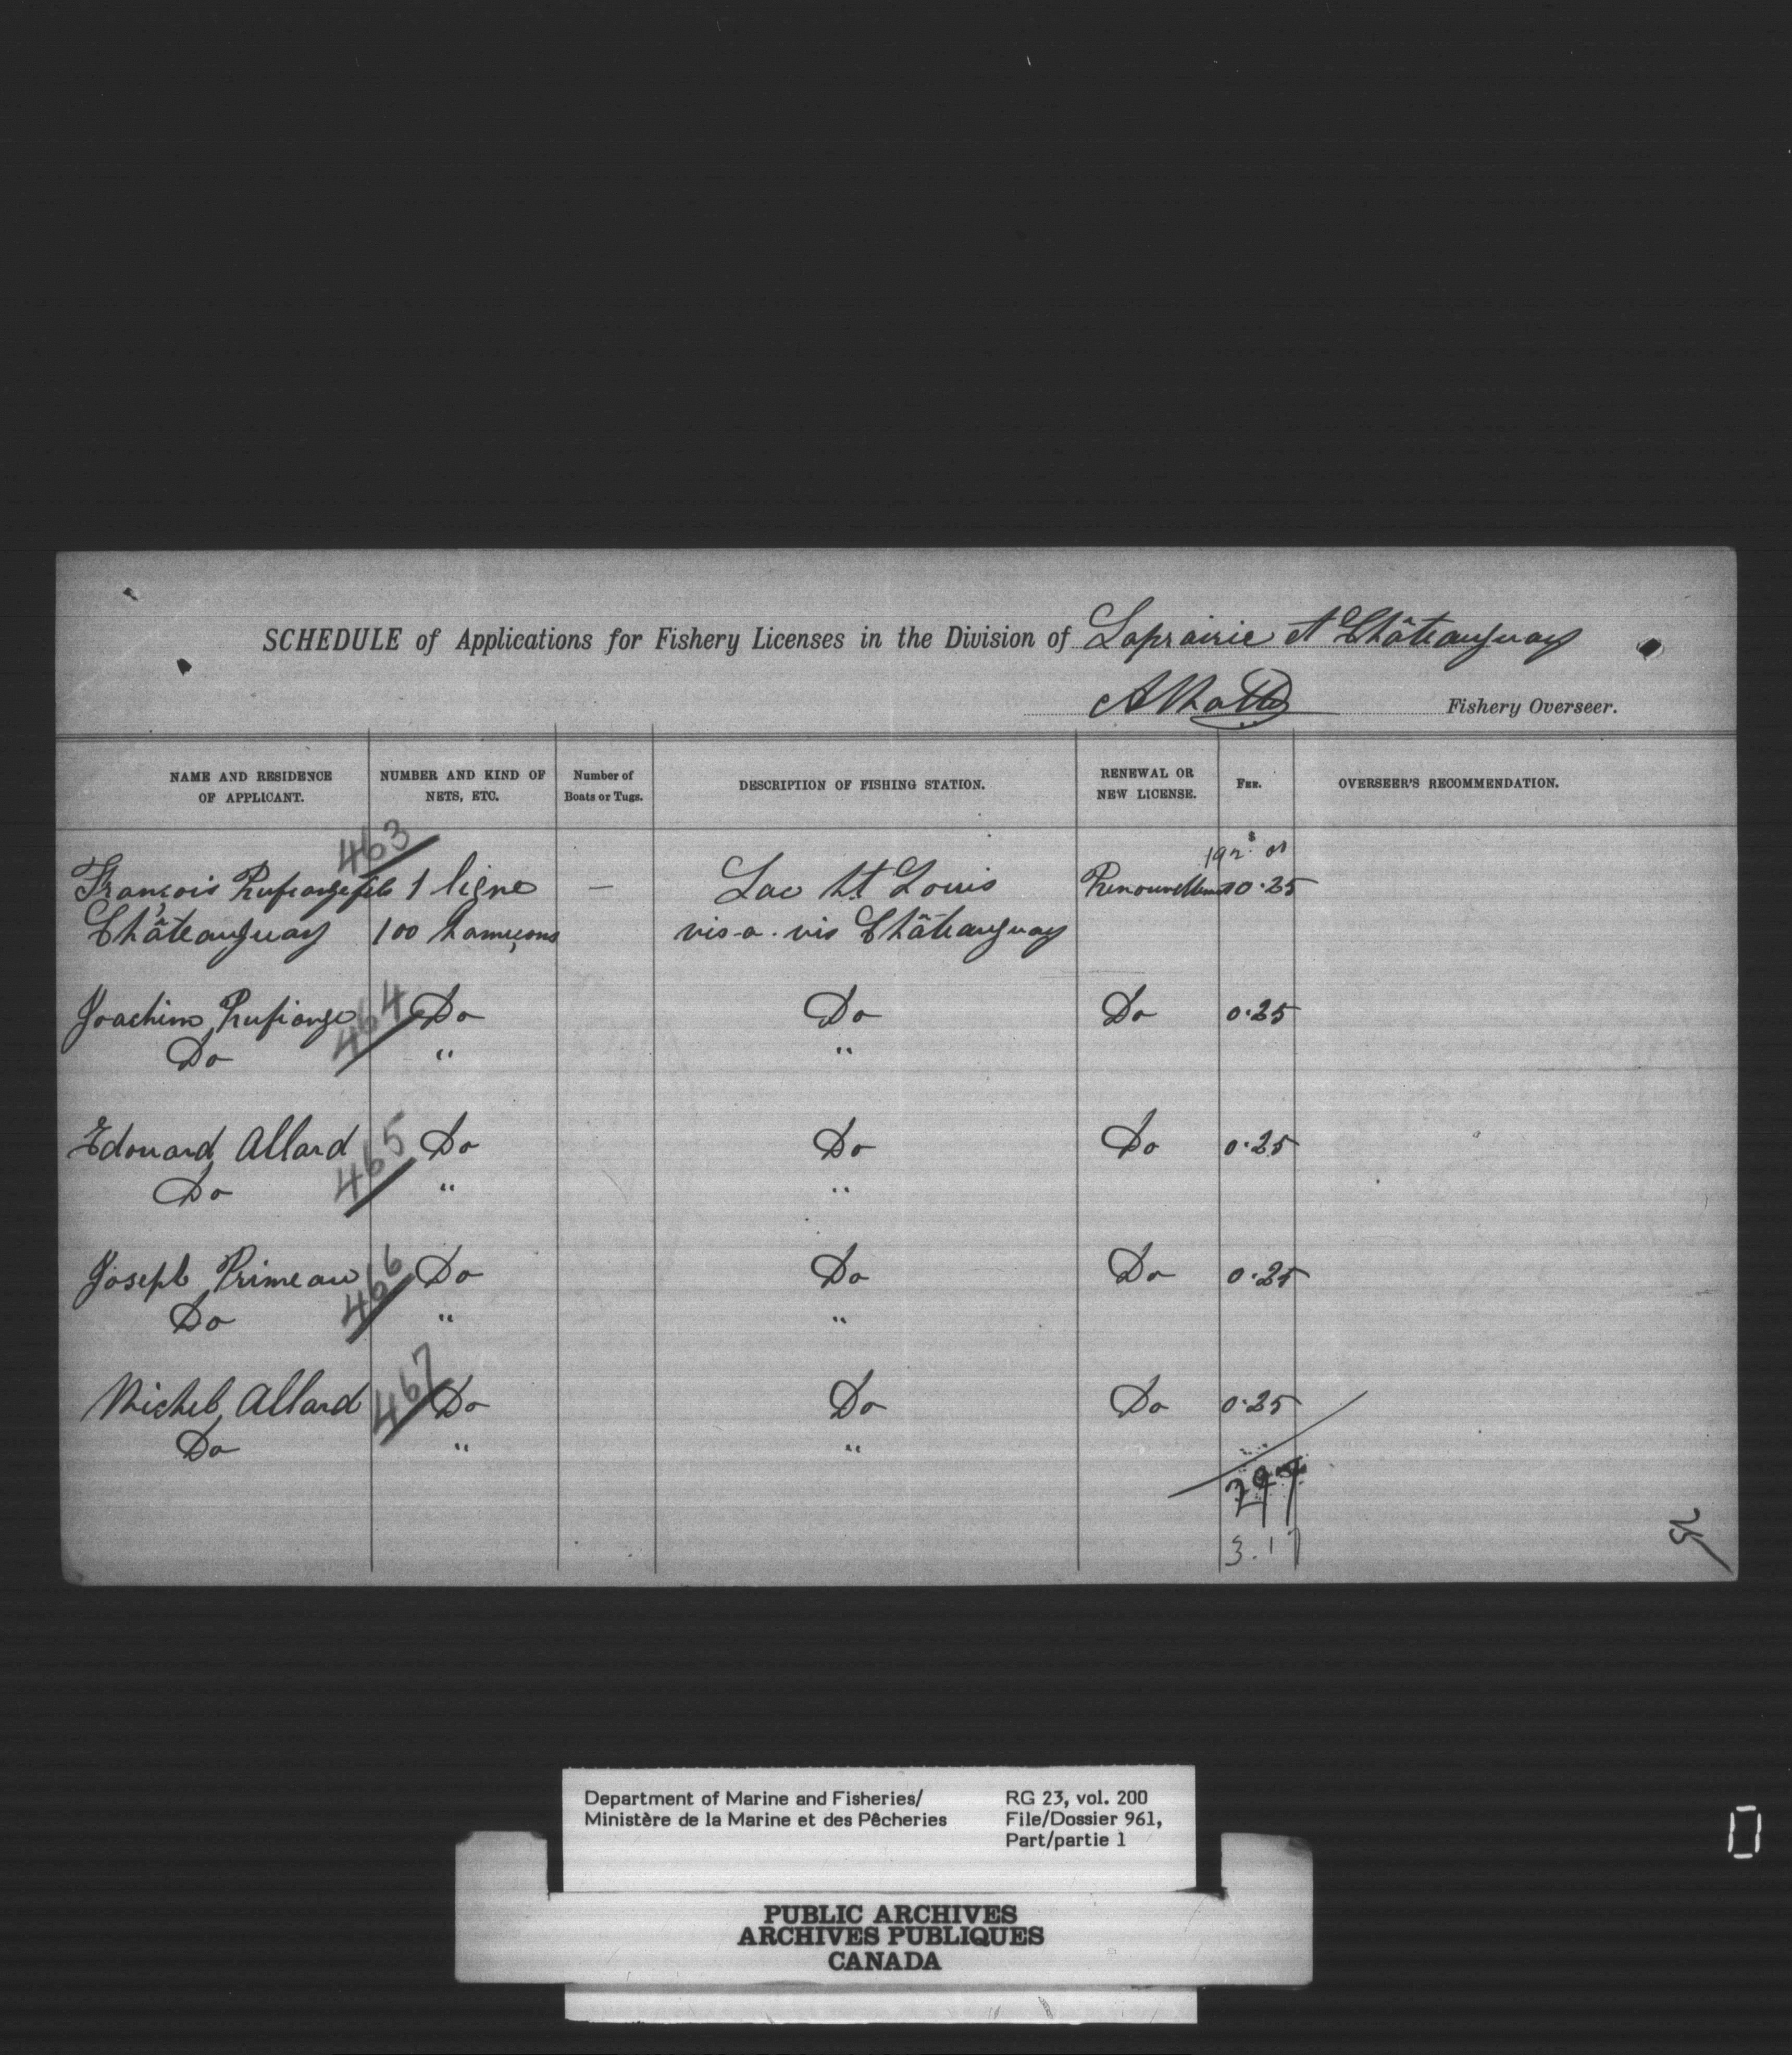 SCHEDULE of Applications for Fishery Licenses in the Division of Laprairie et Châteauguay
Fishery Overseer.
NAME AND RESIDENCE OF APPLICANT. NUMBER AND KIND OF NETS, ETC. Number of Boats or Tugs. DESCRIPTION OF FISHING STATION. RENEWAL OR NEW LICENSE. FEE. OVERSEER'S RECOMMENDATION.
463
François Rufiange fils 1 ligne — Lac St Louis 0.25
Châteauguay 100 hameçons vis-a-vis Châteauguay
464
Joachim Rufiange Do Do Do 0.25
Do " "
465
Edouard Allard Do Do Do 0.25
Do " "
466
Joseph Primeau Do Do Do 0.25
Do " "
467
Michel Allard Do Do Do 0.25
Do " "
3.17
Department of Marine and Fisheries/
Ministère de la Marine et des Pêcheries
RG 23, vol. 200
File/Dossier 961,
Part/partie 1
PUBLIC ARCHIVES
ARCHIVES PUBLIQUES
CANADA